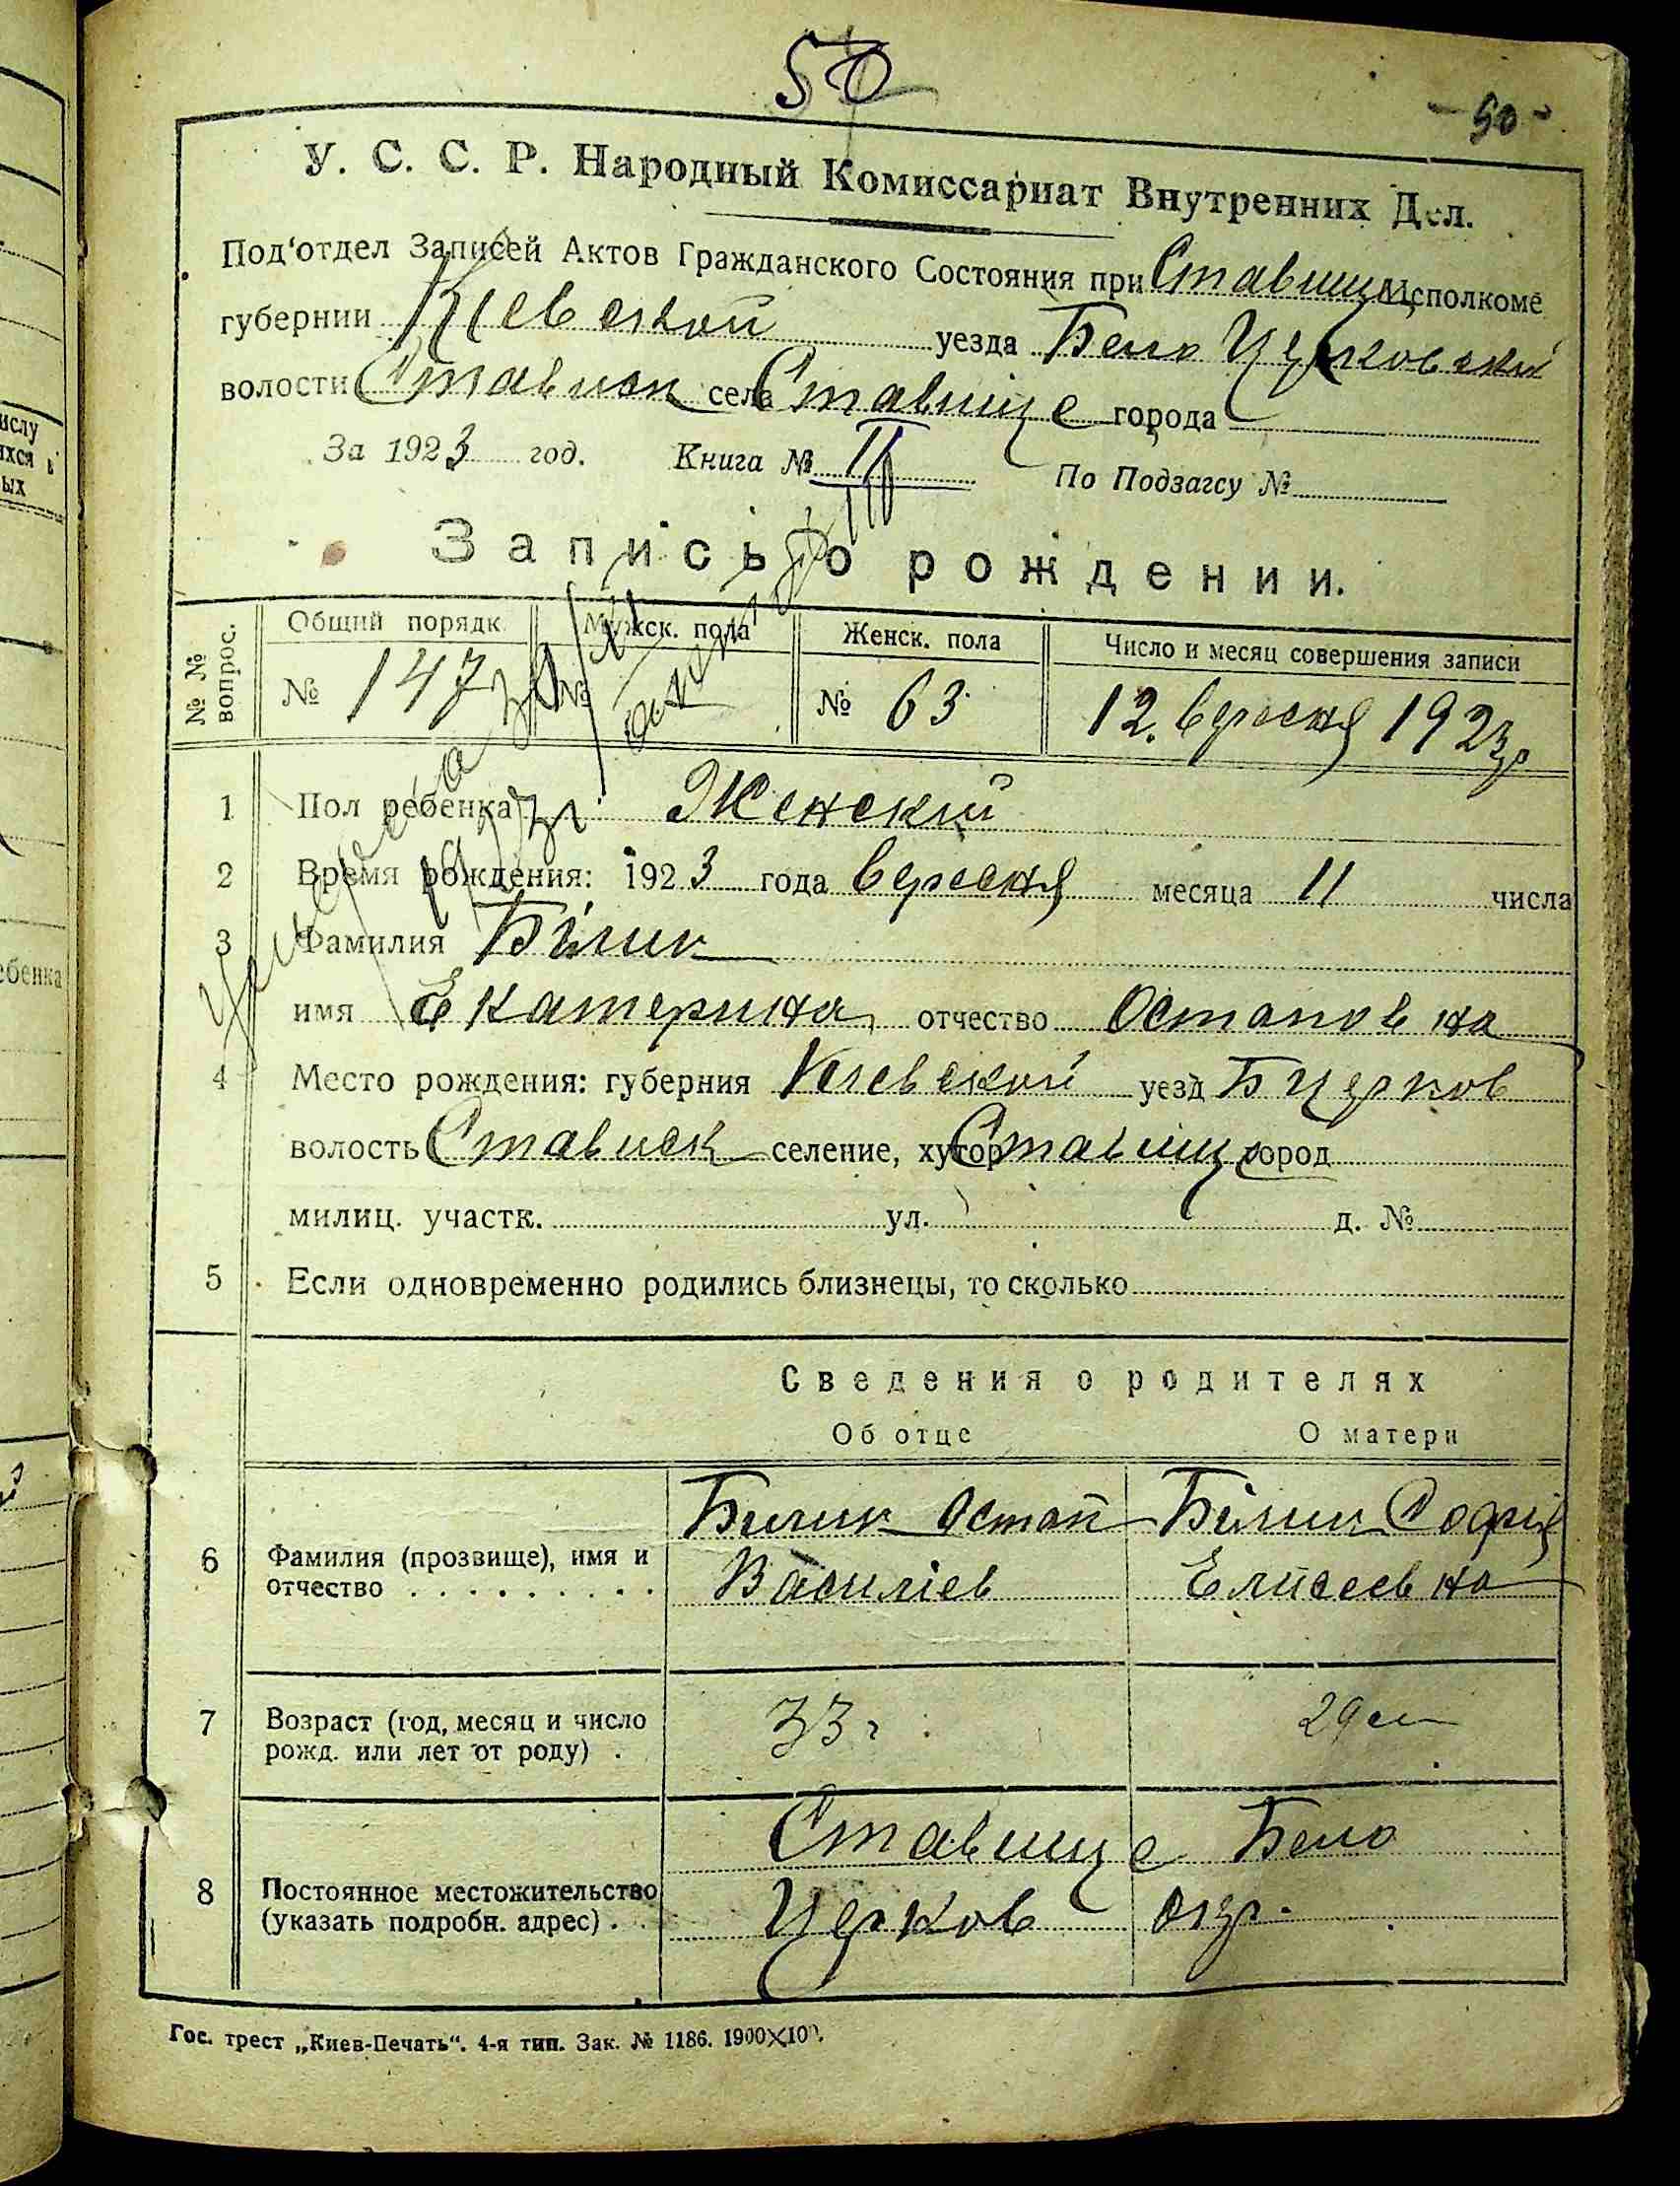 50
- 50 -
У. С. С. Р. Народный Комиссариат Внутренних Дел.
Под'отдел Записей Актов Гражданского Состояния при Ставищ Исполкоме
губернии Кіевской уезда Бело Церковской
волости Стависк села Ставище города
За 1923 год. Книга № II По Подзагсу №
Запись о рождении.
№ № вопрос.
Общий порядк Мужск. пола Женск. пола Число и месяц совершения записи
№ 147 № № 63 12. вересня 1923 р
1 Пол ребенка Женский
2 Время рождения: 1923 года вересня месяца 11 числа
3 Фамилия Білик
имя Екатерина отчество Остаповна
4 Место рождения: губерния Киевской уезд Б Церков
волость Стависк селение, хутор Ставище город
милиц. участк. ул. д. №
5 Если одновременно родились близнецы, то сколько
Сведения о родителях
Об отце О матери
Билик Остап Білик Софія
6 Фамилия (прозвище), имя и
отчество Василіев Елисеевна
7 Возраст (год, месяц и число 33 г 29 л
рожд. или лет от роду) .
Ставище Бело
8 Постоянное местожительство Церков окр.
(указать подробн. адрес) .
Гос. трест „Киев-Печать“. 4-я тип. Зак. № 1186. 1900×100.